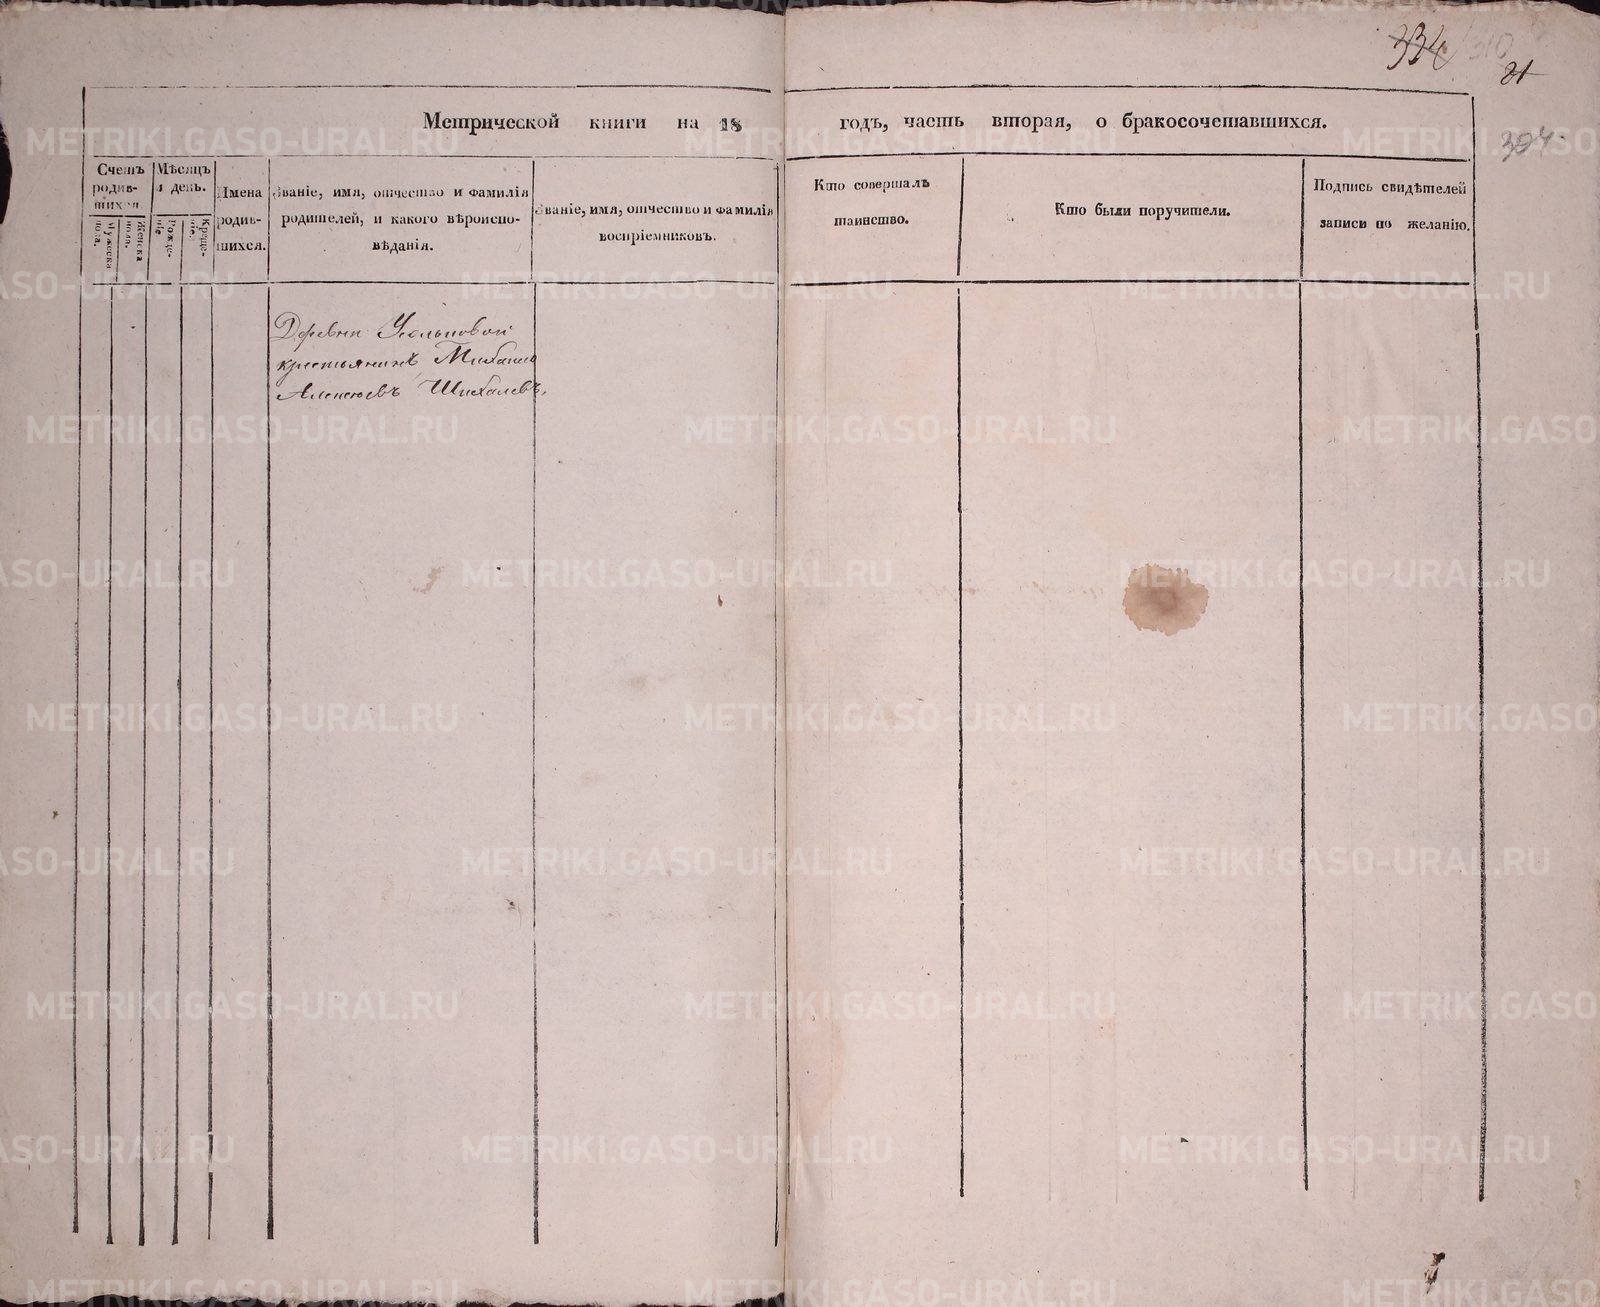 334 310
31
Метрической книги на 18 годъ, часть вторая, о бракосочетавшихся.
304
Счетъ родив-шихся.
Мужеска пола.
Женска пола.
Мѣсяцъ и день.
Рожде-ніе.
Креще-ніе.
Имена родив-шихся.
Званіе, имя, отчество и фамилія
родителей, и какого вѣроиспо-
вѣданія.
Званіе, имя, отчество и фамилія
воспріемниковъ.
Кто совершалъ
таинство.
Кто были поручители.
Подпись свидѣтелей
записи по желанію.
Деревни
крестьянинъ Михаило
Алексѣевъ Шихалевъ,
METRIKI.GASO-URAL.RU